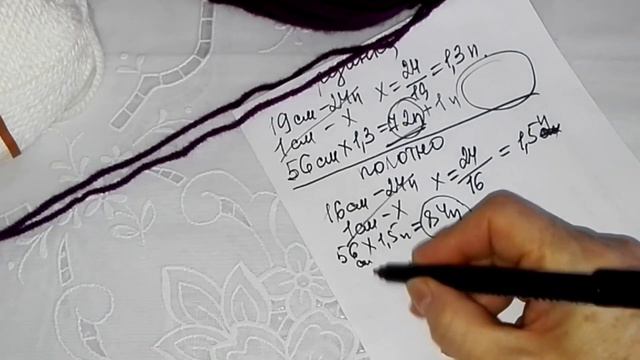 резинка
19см – 24п x = 24/19 = 1,3п
1см – x
56см × 1,3 = 72п + 1п
полотно
16см – 24п x = 24/16 = 1,5п
1см – x
56см × 1,5п = 84п